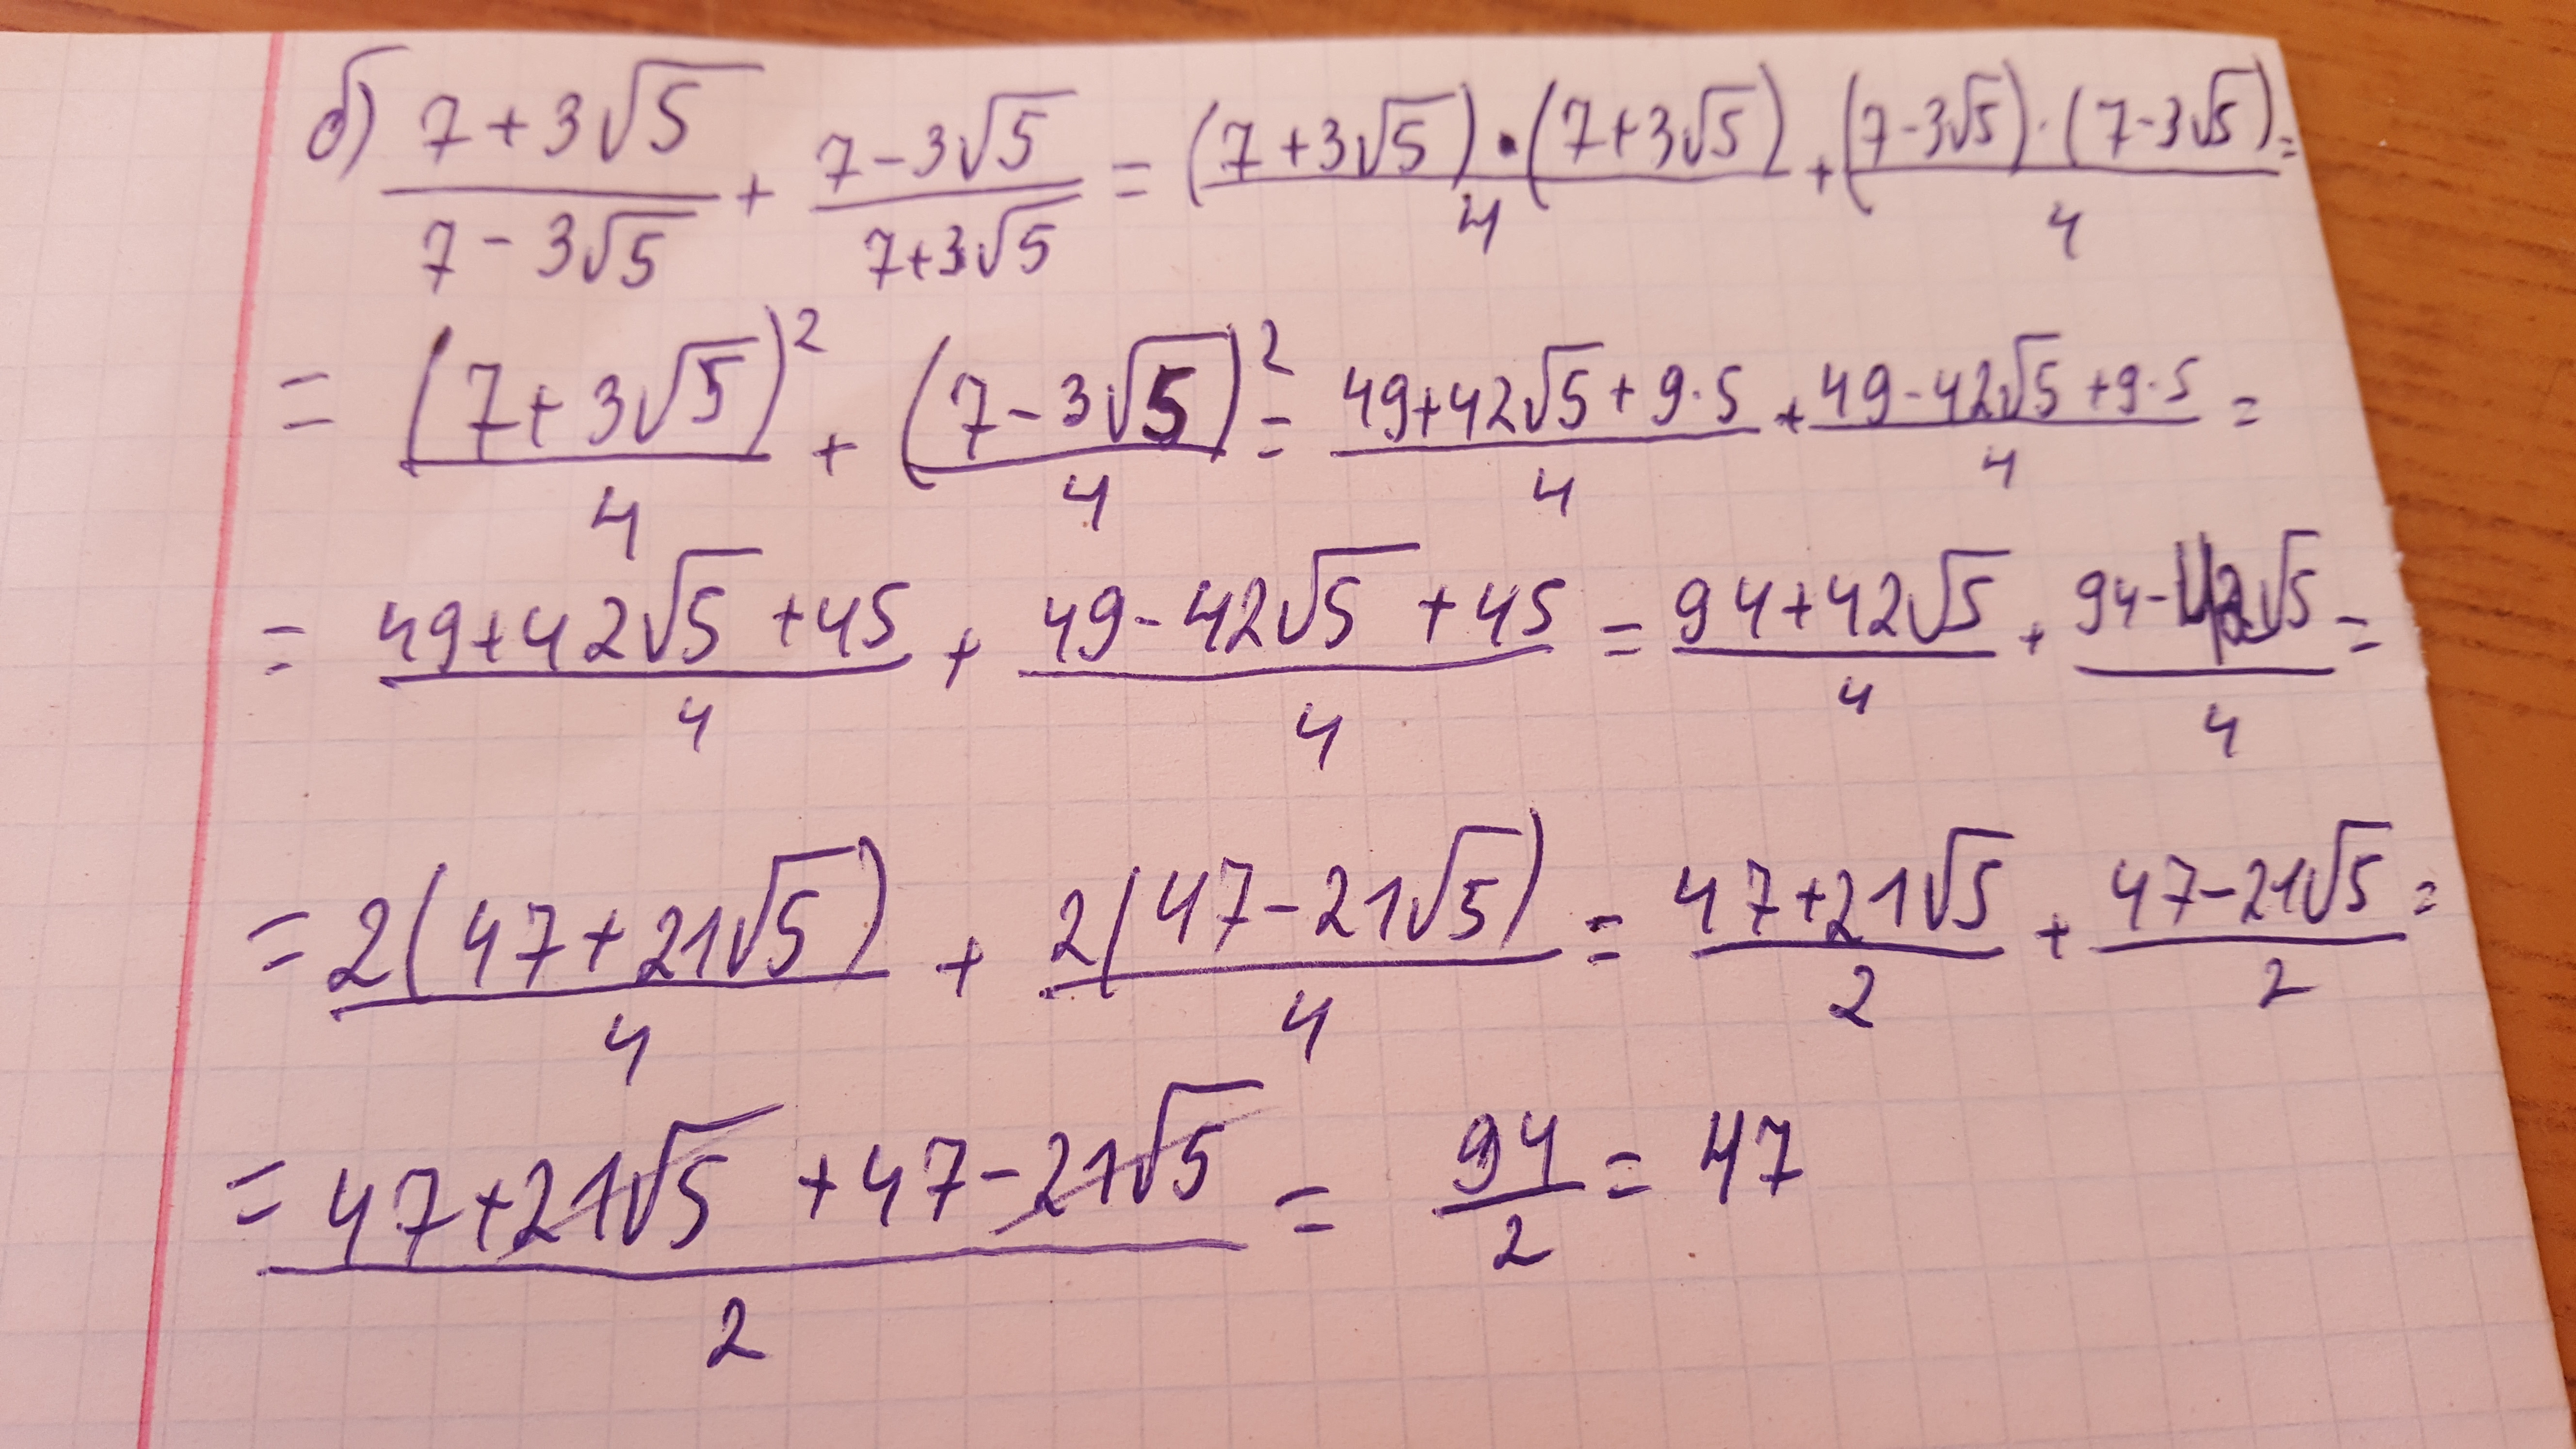 б) (7+3√5)/(7-3√5) + (7-3√5)/(7+3√5) = ((7+3√5)·(7+3√5))/4 + ((7-3√5)·(7-3√5))/4 =
= (7+3√5)²/4 + (7-3√5)²/4 = (49+42√5+9·5)/4 + (49-42√5+9·5)/4 =
= (49+42√5+45)/4 + (49-42√5+45)/4 = (94+42√5)/4 + (94-42√5)/4 =
= 2(47+21√5)/4 + 2(47-21√5)/4 = (47+21√5)/2 + (47-21√5)/2 =
= (47+21√5+47-21√5)/2 = 94/2 = 47